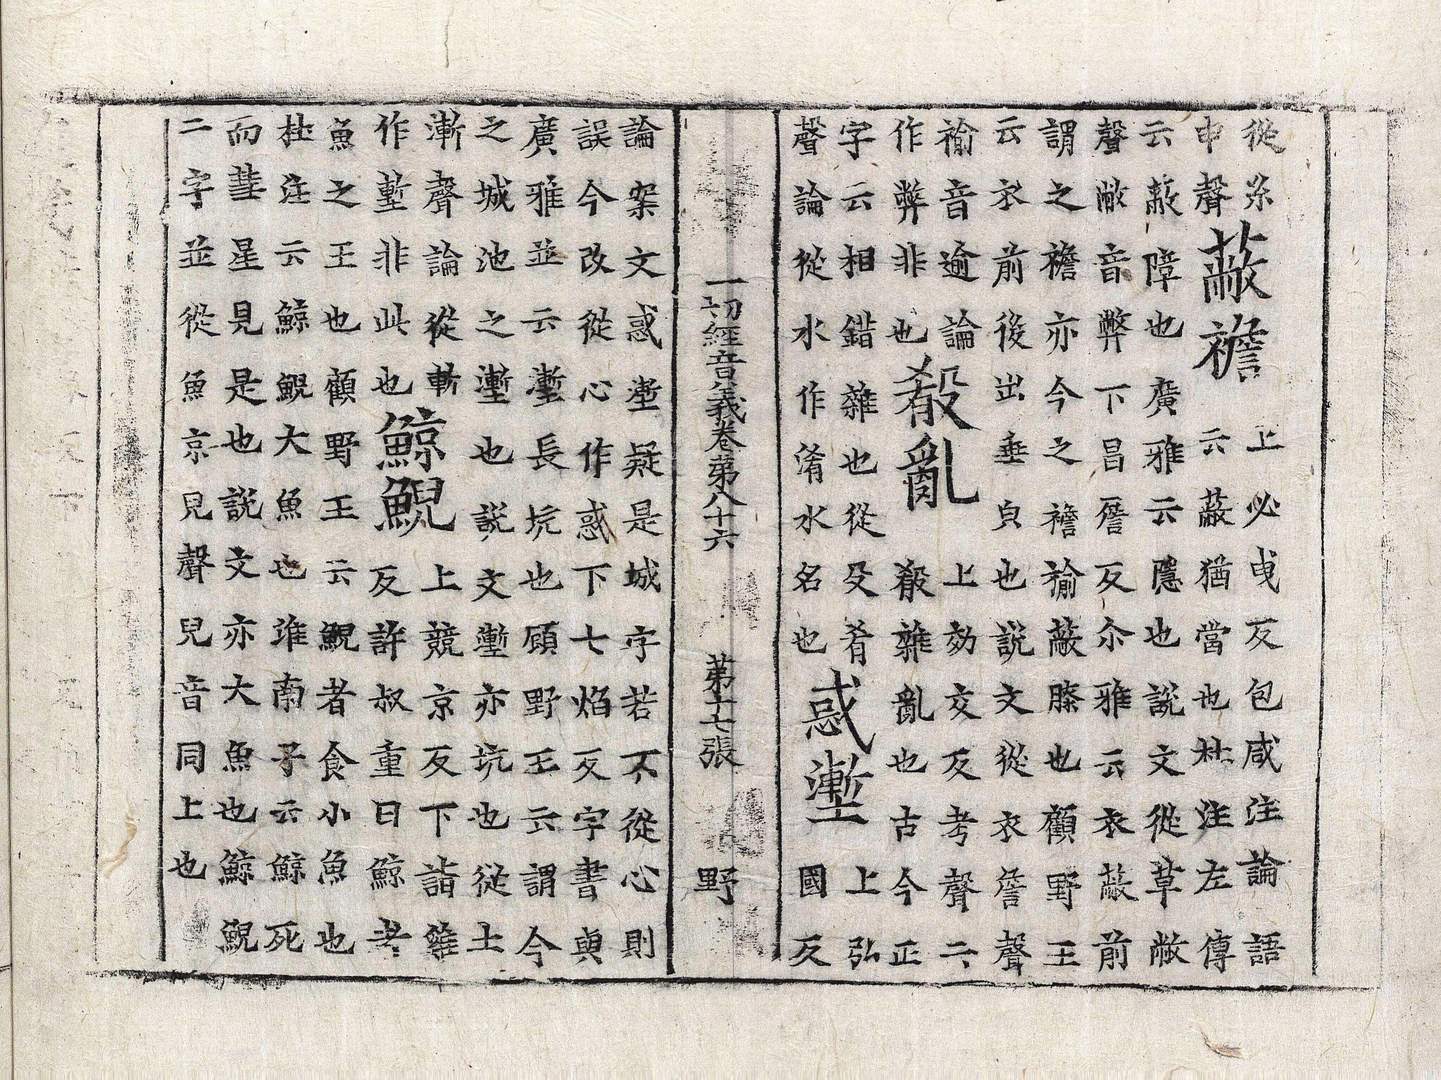 從糸
申聲
蔽襜
上必曳反包咸注論語
云蔽猶當也杜注左傳
云蔽障也廣雅云隱也說文從草敝
聲敝音弊下昌詹反尒雅云衣蔽前
謂之襜亦今之襜褕蔽膝也顧野王
云衣前後出垂皃也說文從衣詹聲
褕音逾論
作弊非也
殽亂
上効交反考聲云
殽雜亂也古今正
字云相錯雜也從殳肴
聲論從水作淆水名也
惑壍
上弘
國反
一切經音義卷第八十六 第十七張 野
論案文惑壍疑是城字若不從心則
誤今改從心作惑下七焰反字書與
廣雅並云壍長坑也顧野王云謂今
之城池之壍也說文壍亦坑也從土
漸聲論從斬
作塹非此也
鯨鯢
上競京反下詣雞
反許叔重曰鯨者
魚之王也顧野王云鯢者食小魚也
杜注云鯨鯢大魚也淮南子云鯨死
而彗星見是也說文亦大魚也鯨鯢
二字並從魚京見聲兒音同上也